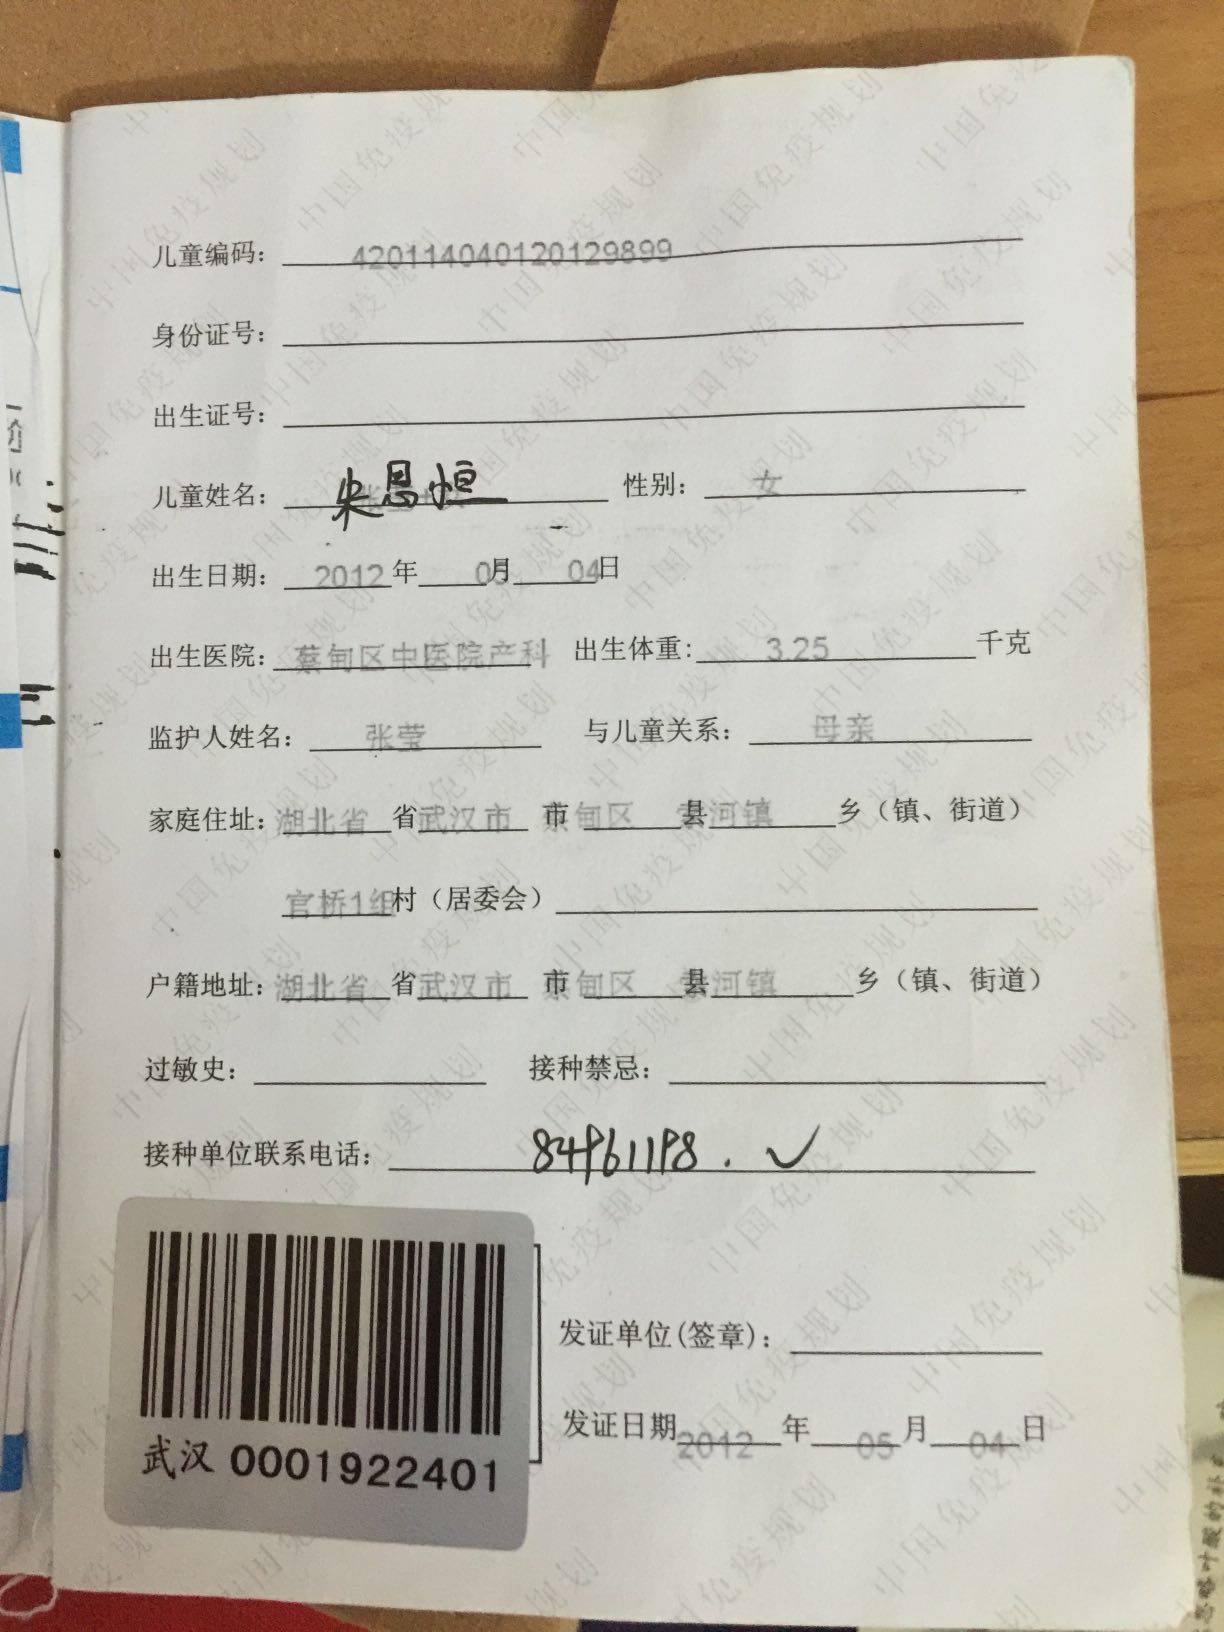 儿童编码： 420114040120129899
身份证号：
出生证号：
儿童姓名： 宋思恒 性别： 女
出生日期： 2012 年 月 04 日
出生医院： 蔡甸区中医院产科 出生体重： 3.25 千克
监护人姓名： 张莹 与儿童关系： 母亲
家庭住址： 湖北省 省 武汉市 市 蔡甸区 县 索河镇 乡（镇、街道）
官桥1组 村（居委会）
户籍地址： 湖北省 省 武汉市 市 蔡甸区 县 索河镇 乡（镇、街道）
过敏史： 接种禁忌：
接种单位联系电话： 84961198. ✓
发证单位(签章)：
发证日期 2012 年 05 月 04 日
武汉 0001922401
中国免疫规划